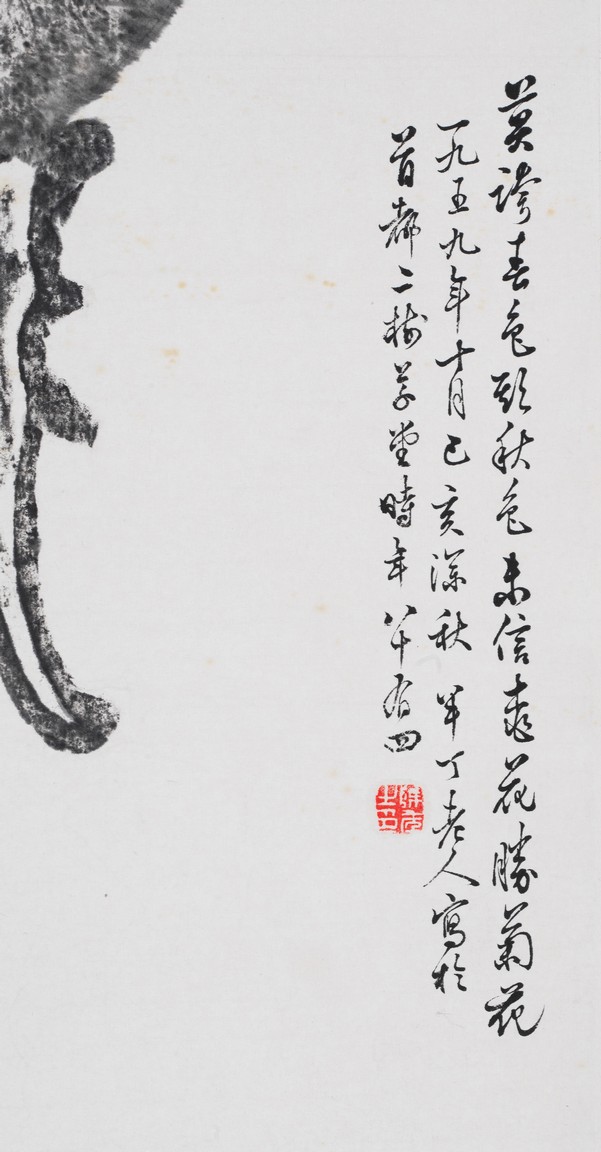 莫誇春色欺秋色未信春花勝菊花
一九五九年十月己亥深秋半丁老人寫於
首都二樹草堂時年八十有四